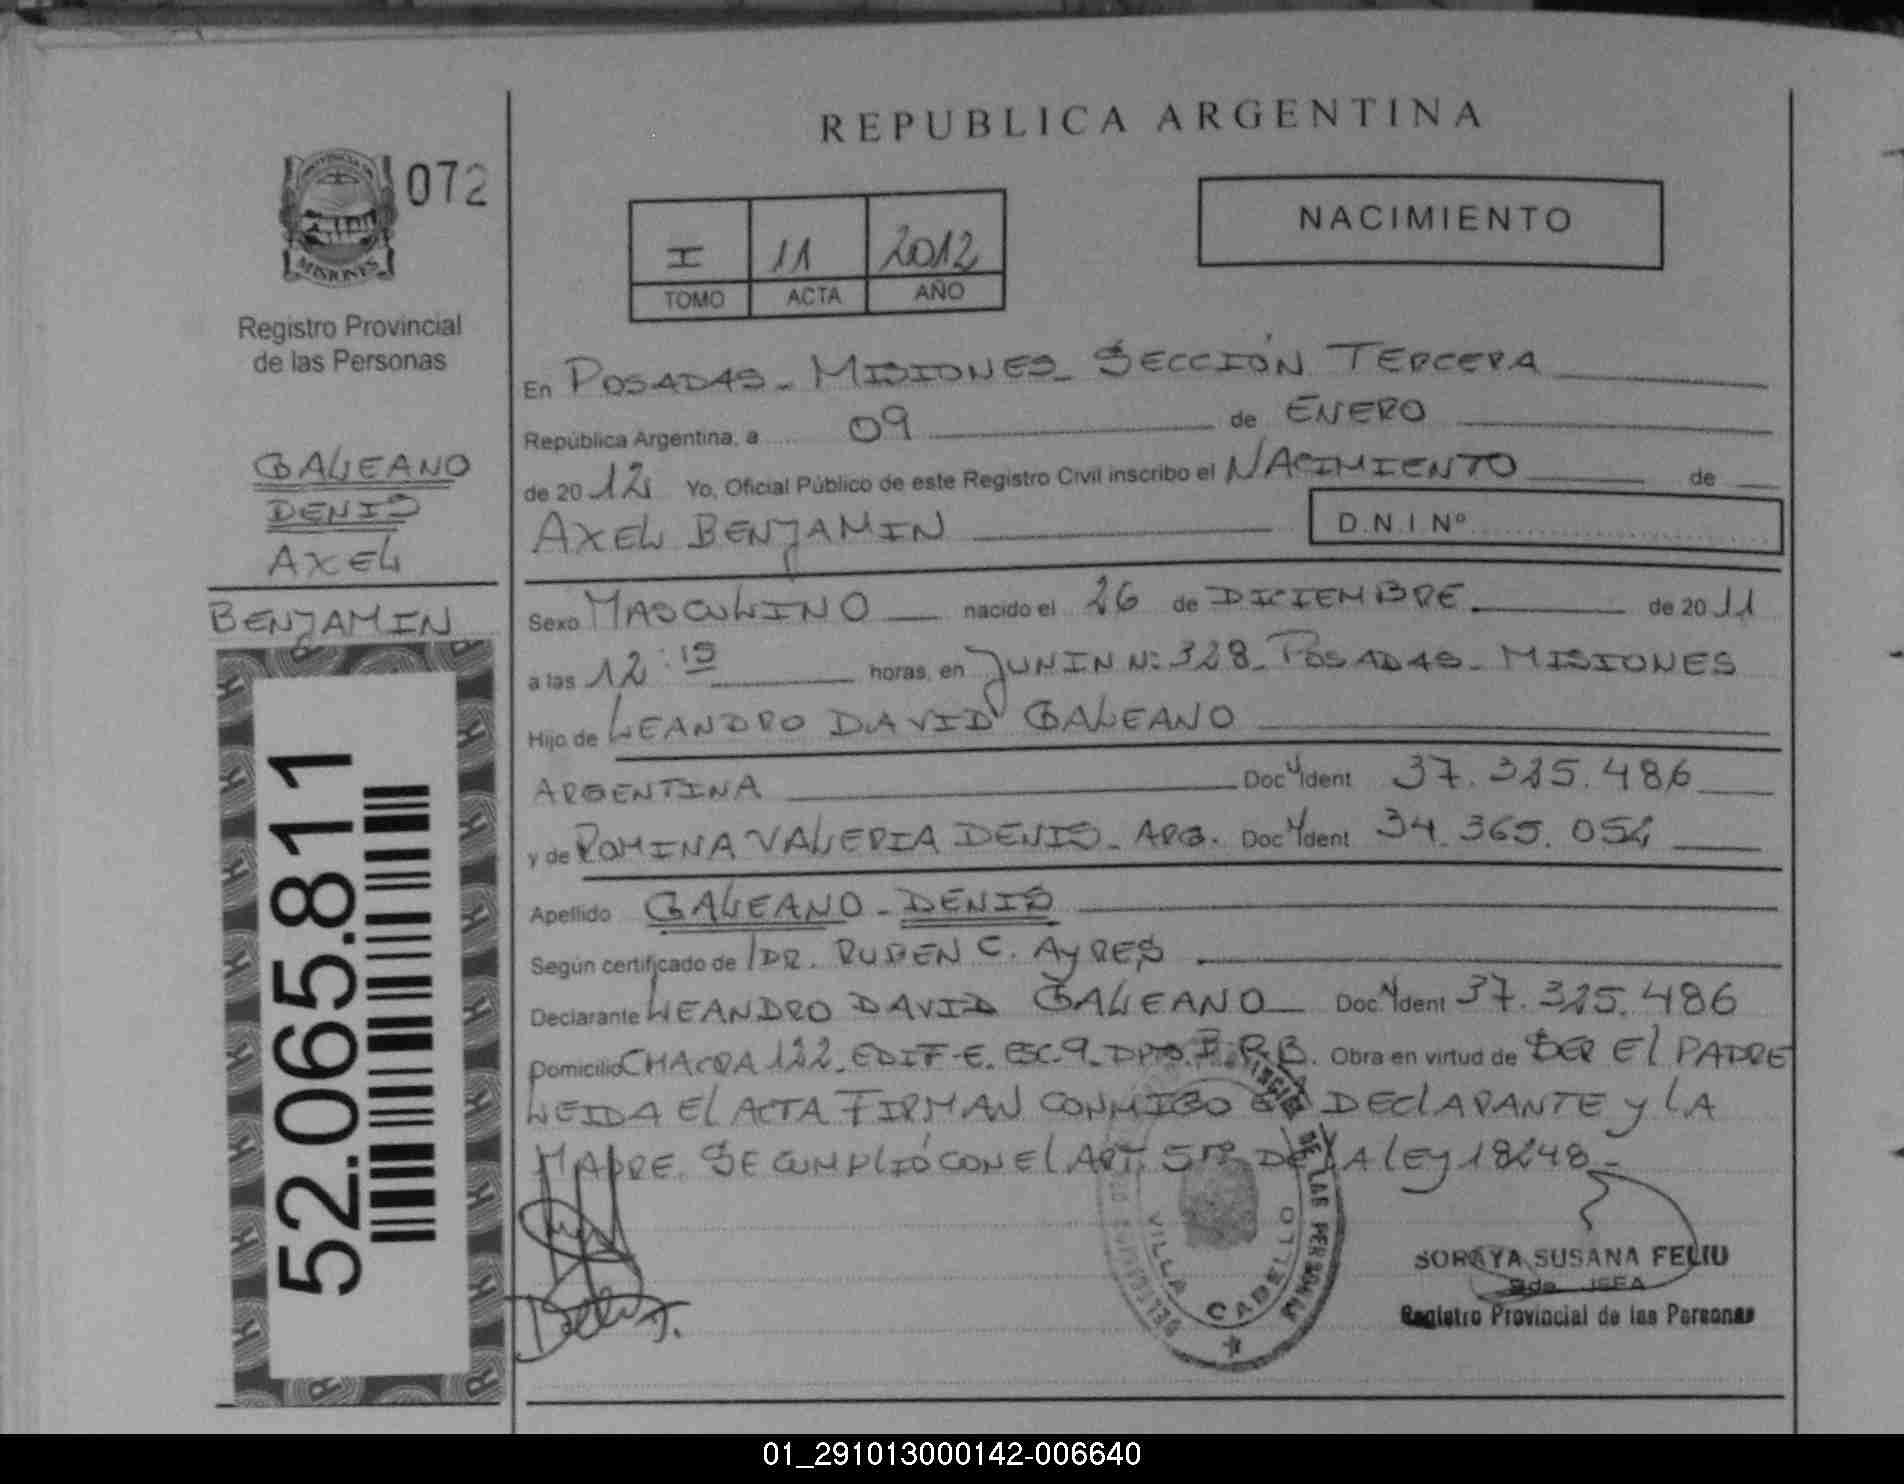 REPUBLICA ARGENTINA
PROVINCIA DE
MISIONES
072
Registro Provincial
de las Personas
I 11 2012
TOMO ACTA AÑO
NACIMIENTO
GALEANO
DENIS
AXEL
BENJAMIN
52.065.811
En POSADAS - MISIONES - SECCIÓN TERCERA
República Argentina, a 09 de ENERO
de 2012 Yo, Oficial Público de este Registro Civil inscribo el NACIMIENTO de
AXEL BENJAMIN D.N.I Nº
Sexo MASCULINO nacido el 26 de DICIEMBRE de 2011
a las 12:15 horas, en JUNIN N: 328 - POSADAS - MISIONES
Hijo de LEANDRO DAVID GALEANO
ARGENTINA Doc Ident 37.325.486
y de ROMINA VALERIA DENIS - ARG. Doc Ident 34.365.054
Apellido GALEANO - DENIS
Según certificado de DR. RUBEN C. AYRES
Declarante LEANDRO DAVID GALEANO Doc Ident 37.325.486
Domicilio CHACRA 122 - EDIF - E. ESC. 9 - DPTO. P.B. Obra en virtud de SER El PADRE
LEIDA El ACTA FIRMAN CONMIGO EL DEClARANTE y LA
MADRE. SE CUMPLIÓ CON El ART. 5TO DE LA lEy 18248 -
VILLA CABELLO
DE LAS PERSONAS
SORAYA SUSANA FELIU
Registro Provincial de las Personas
01_291013000142-006640